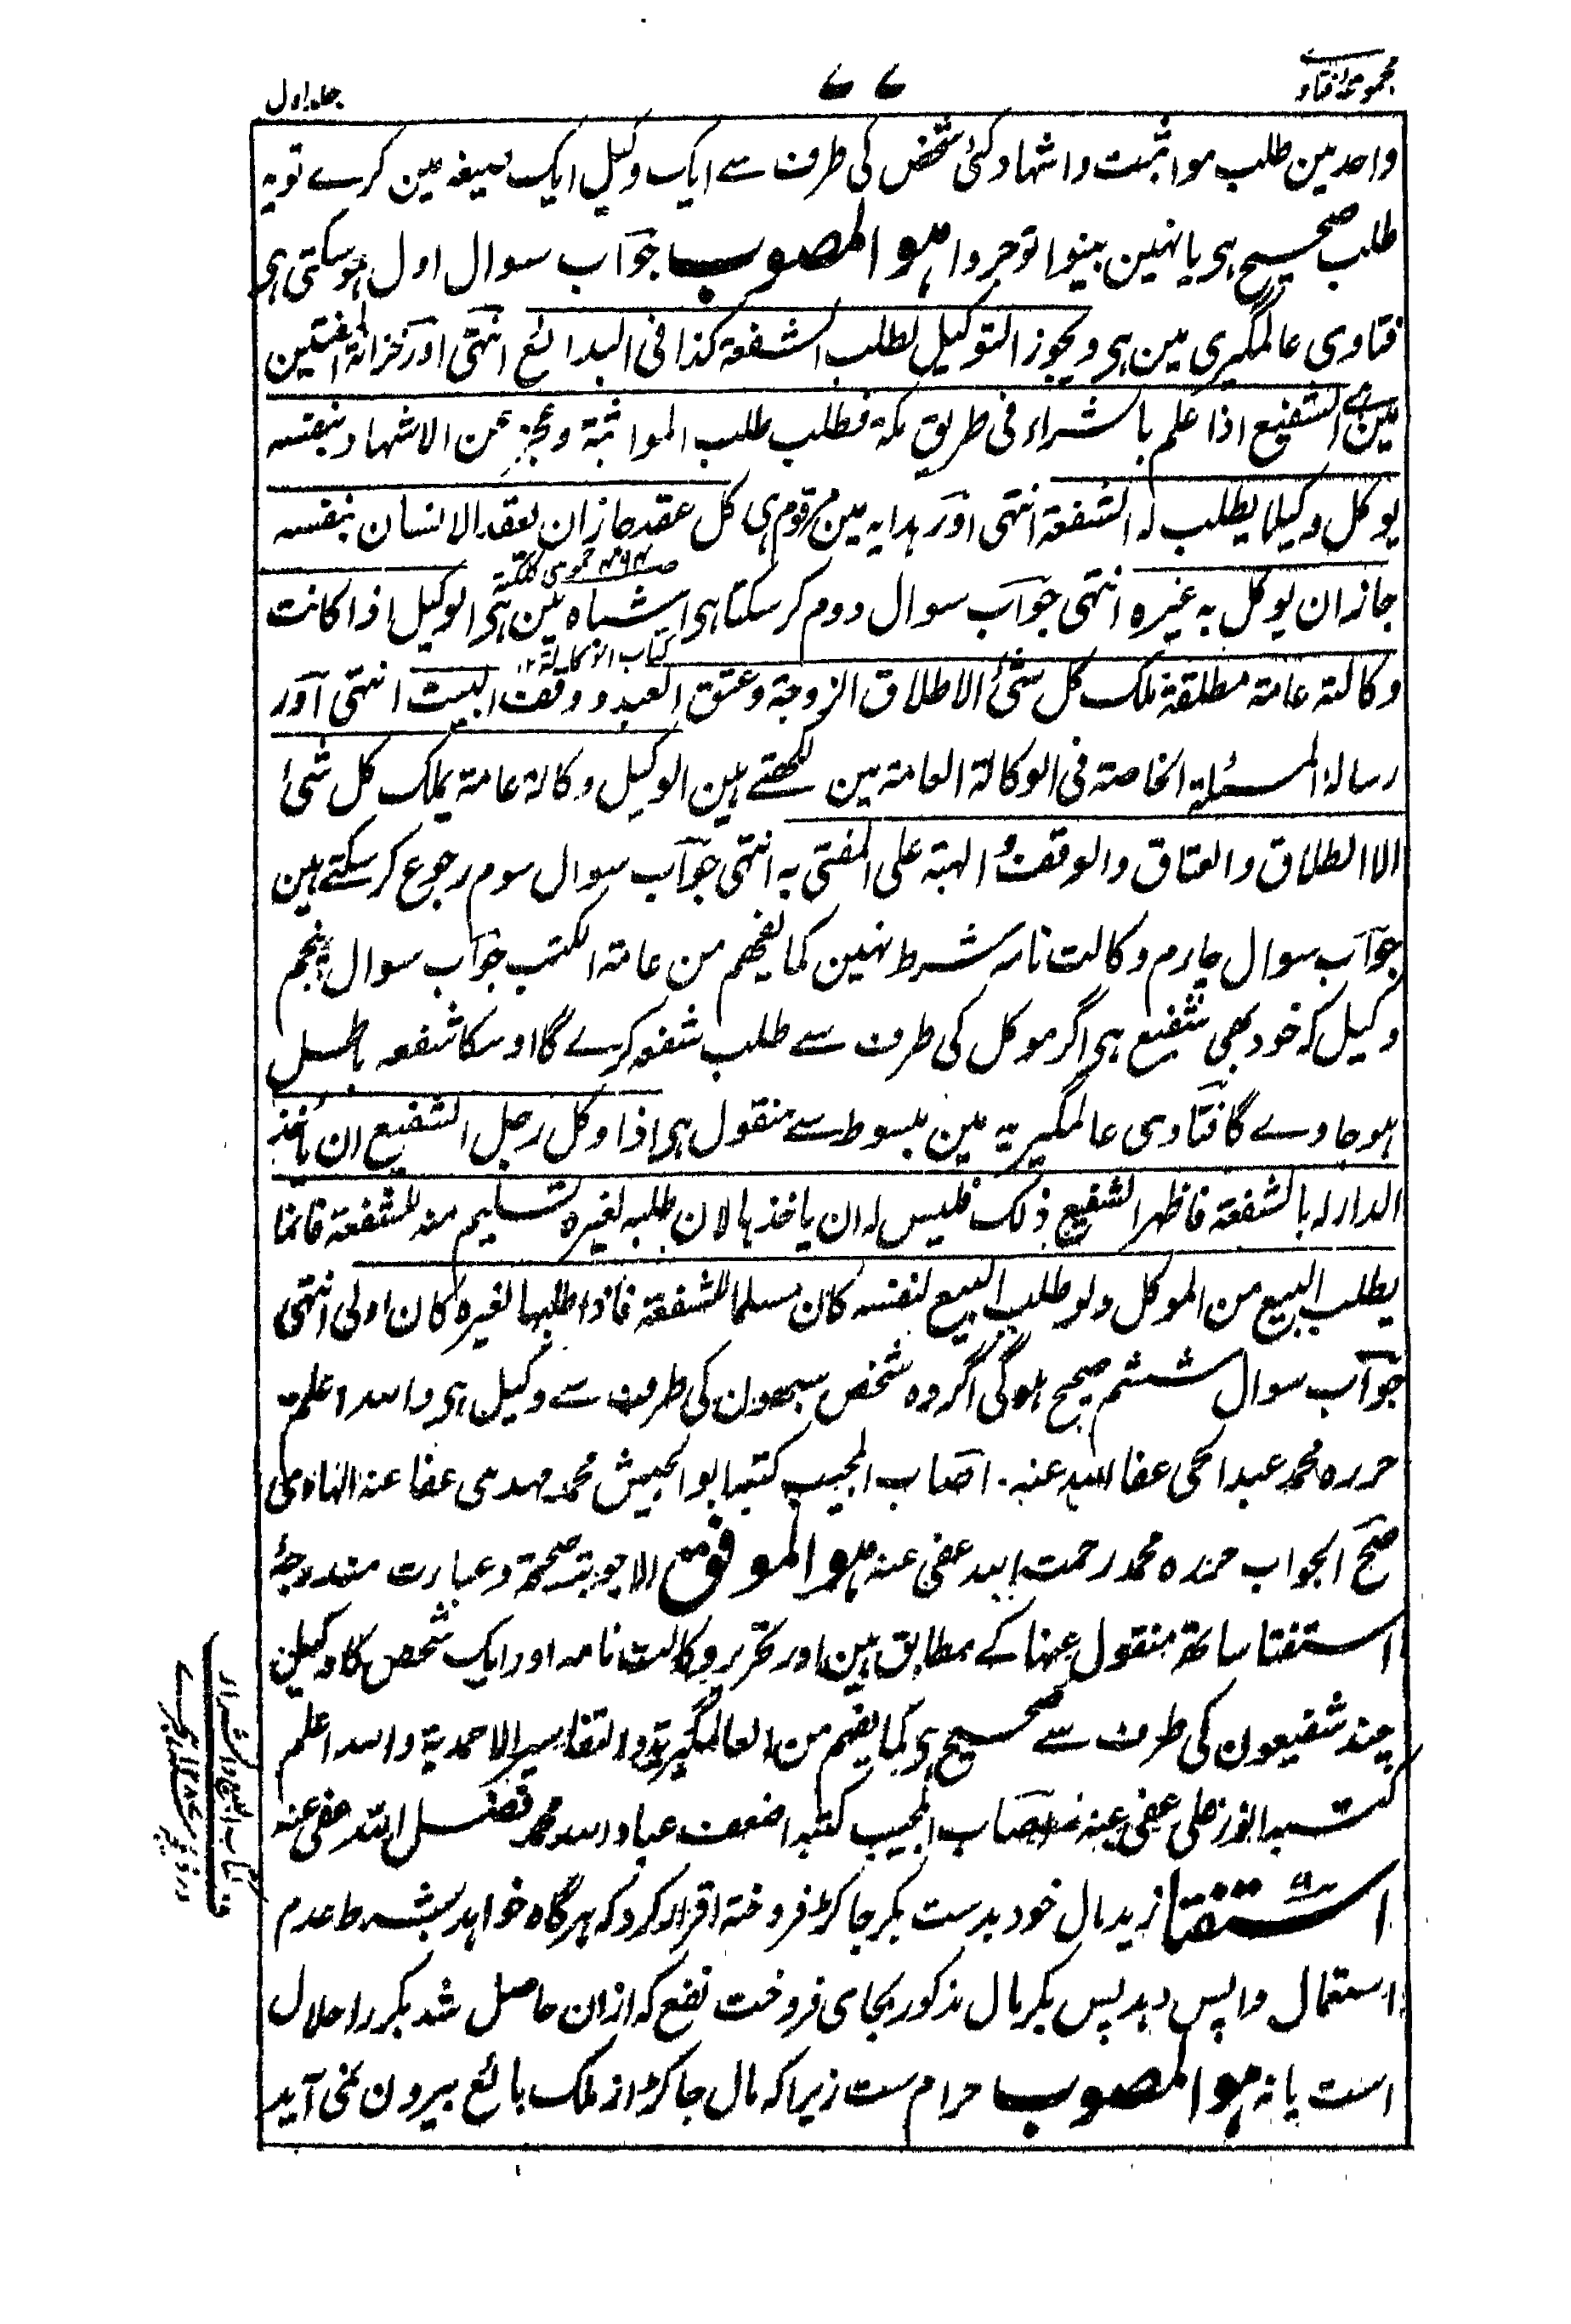 مجموعۂ فتاوے
۷۷
جلد اول
واحد مین طلب مواثبت واشہاد کئی شخص کی طرف سے ایک وکیل ایک صیغہ مین کرے تو یہ
طلب صحیح ہی یا نہین بینوا توجروا ہو المصوب جواب سوال اول ہوسکتی ہی
فتاوی عالمگیری مین ہی ویجوز التوکیل لطلب الشفعۃ کذا فی البدائع انتہی اور خزانۃ المفتین
مین ہے الشفیع اذا علم بالشراء فی طریق مکۃ فطلب طلب المواثبۃ وعجز عن الاشہاد بنفسہ
یوکل وکیلا یطلب لہ الشفعۃ انتہی اور ہدایہ مین مرقوم ہی کل عقد جاز ان یعقدہ الانسان بنفسہ
جاز ان یوکل بہ غیرہ انتہی جواب سوال دوم کرسکتا ہی اشباہ مین ہی الوکیل اذا کانت
کتاب الوکالۃ ۱۲
وکالتہ عامۃ مطلقۃ ملک کل شئ الا طلاق الزوجۃ وعتق العبد ووقف البیت انتہی اور
رسالۂ المسئلۃ الخاصۃ فی الوکالۃ العامۃ مین لکھتے ہین الوکیل وکالۃ عامۃ یملک کل شئ
الا الطلاق والعتاق والوقف والہبۃ علی المفتی بہ انتہی جواب سوال سوم رجوع کرسکتے ہین
جواب سوال چارم وکالت نامہ شرط نہین کما یفہم من عامۃ الکتب جواب سوال پنجم
وکیل کہ خود بھی شفیع ہی اگر موکل کی طرف سے طلب شفعہ کرے گا اوسکا شفعہ باطل
ہوجاوے گا فتاوی عالمگیریہ مین مبسوط سے منقول ہی اذا وکل رجل الشفیع ان یاخذ
الدار لہ بالشفعۃ فاظہر الشفیع ذلک فلیس لہ ان یاخذہا لان طلبہ لغیرہ تسلیم منہ للشفعۃ فانما
یطلب البیع من الموکل ولو طلب البیع لنفسہ کان مسلما للشفعۃ فاذا طلبہا لغیرہ کان اولی انتہی
جواب سوال ششم صحیح ہوگی اگر وہ شخص سبھون کی طرف سے وکیل ہی واللہ اعلم
حررہ محمد عبد الحی عفا اللہ عنہ۔ اصاب المجیب کتبہ ابو الجیش محمد مہدی عفا عنہ الہادی
صح الجواب حررہ محمد رحمت اللہ عفی عنہ ہو الموفق الاجوبۃ صحیحۃ وعبارت مندرجۂ
استفتا سابقۃ منقول عنہا کے مطابق ہین اور تحریر وکالت نامہ اور ایک شخص کا وکیل
چند شفیعون کی طرف سے صحیح ہی کما یفہم من العالمگیریۃ والتفاسیر الاحمدیۃ واللہ اعلم
کتبہ انور علی عفی عنہ اصاب المجیب کتبہ اضعف عباد اللہ محمد فضل اللہ عفی عنہ
استفتا زید مال خود بدست بکر جاکڑ فروختہ اقرار کرد کہ ہرگاہ خواہد بشرط عدم
استعمال واپس دہد پس بکر مال مذکور بجای فروخت نفع کہ ازان حاصل شد بکر را حلال
است یا نہ ہو المصوب حرام ست زیراکہ مال جاکڑ از ملک بائع بیرون نمی آید